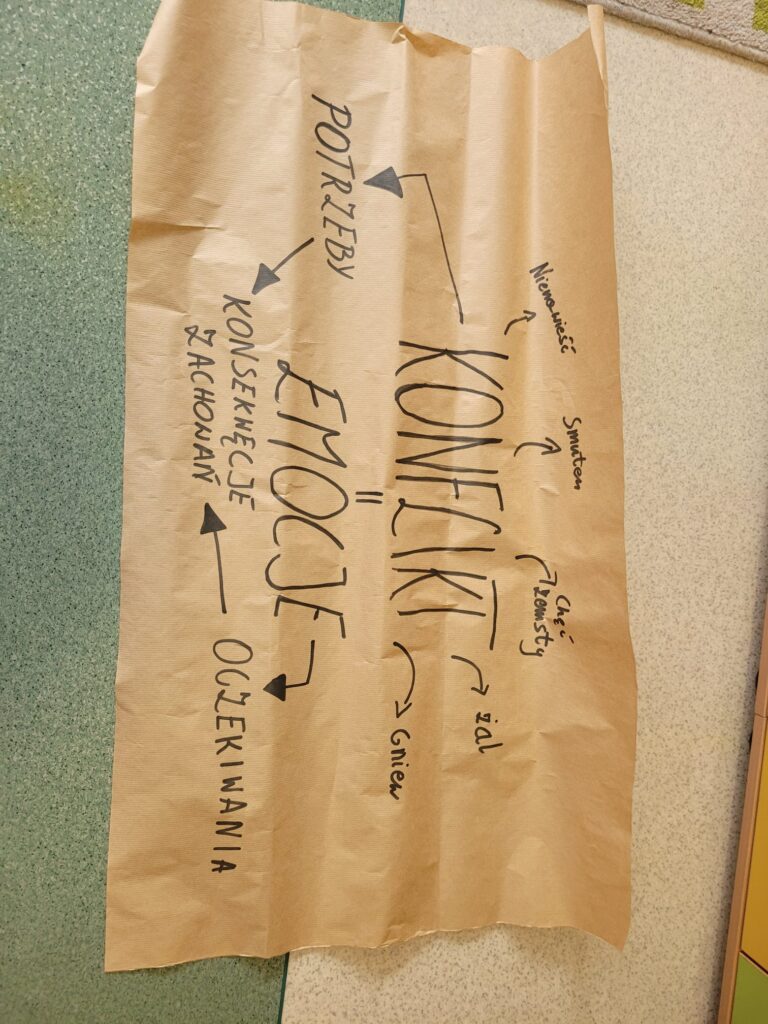 Nienawiść
Smutek
Chęć
zemsty
żal
KONFLIKT
Gniew
=
POTRZEBY
EMOCJE
KONSEKWĘCJE
ZACHOWAŃ
OCZEKIWANIA